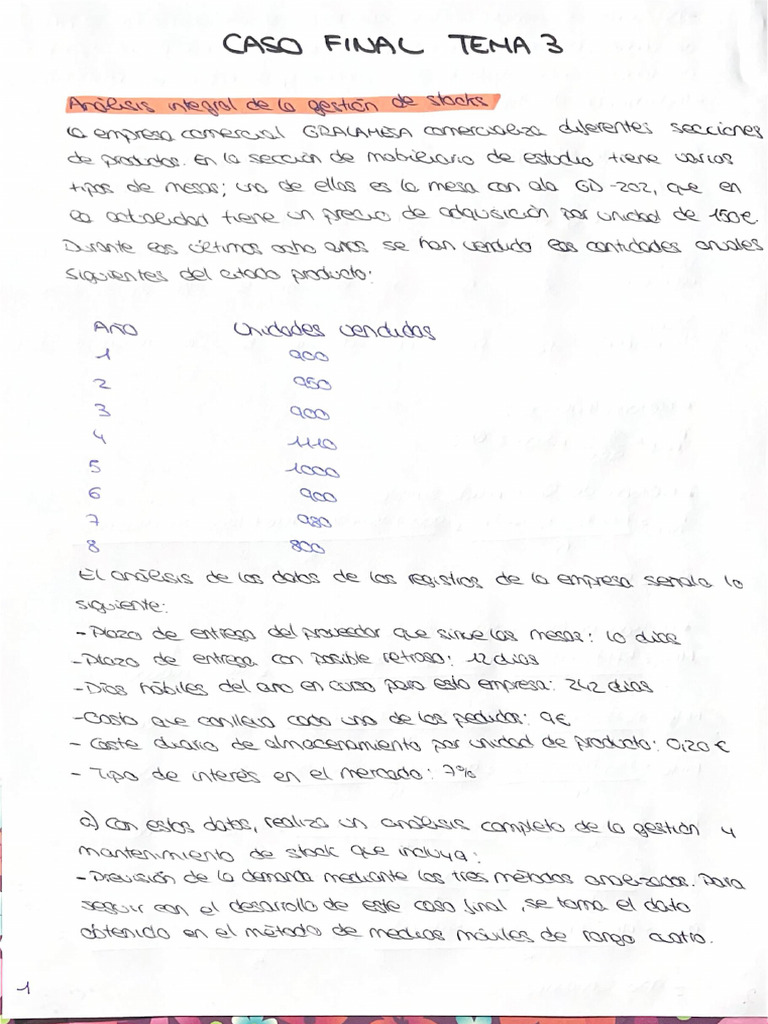 CASO FINAL TEMA 3
Análisis integral de la gestión de stocks
La empresa comercial GRALAMESA comercializa diferentes secciones
de productos. En la sección de mobiliario de estudio tiene varios
tipos de mesas; una de ellas es la mesa con ala GD-202, que en
la actualidad tiene un precio de adquisición por unidad de 150€.
Durante los últimos ocho años se han vendido las cantidades anuales
siguientes del citado producto:
Año Unidades vendidas
1 900
2 950
3 900
4 1110
5 1000
6 900
7 980
8 800
El análisis de los datos de los registros de la empresa señala lo
siguiente:
- Plazo de entrega del proveedor que sirve las mesas: 10 días
- Plazo de entrega con posible retraso: 12 días
- Días hábiles del año en curso para esta empresa: 242 días
- Costo que conlleva cada uno de los pedidos: 9€
- Coste diario de almacenamiento por unidad de producto: 0,20€
- Tipo de interés en el mercado: 7%
a) Con estos datos, realiza un análisis completo de la gestión y
mantenimiento de stock que incluya:
- Previsión de la demanda mediante los tres métodos analizados. Para
seguir con el desarrollo de este caso final, se toma el dato
obtenido en el método de medias móviles de rango cuatro.
1